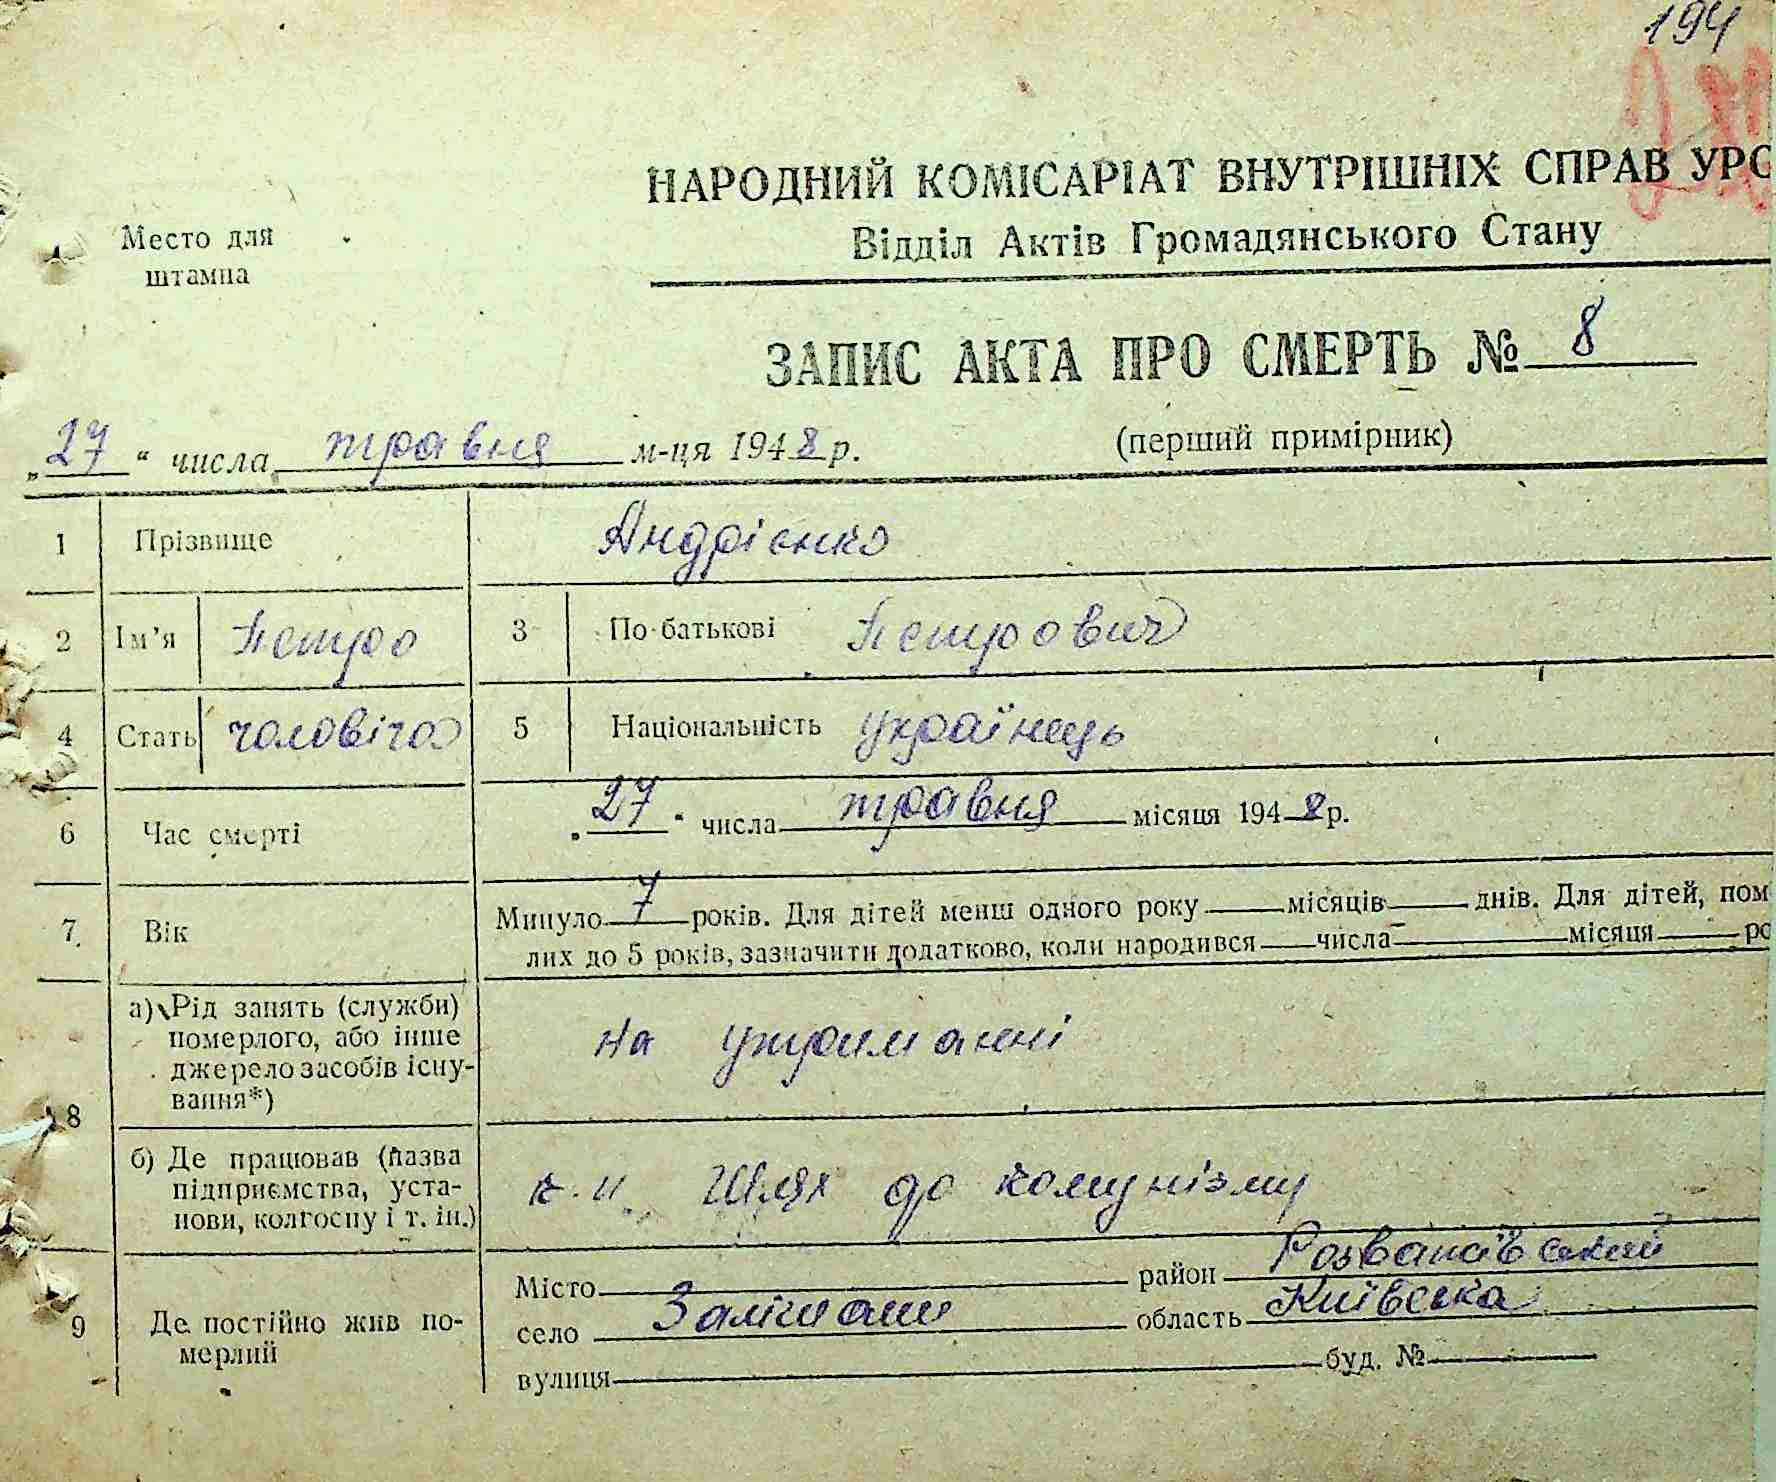 194
НАРОДНИЙ КОМІСАРІАТ ВНУТРІШНІХ СПРАВ УРС
Відділ Актів Громадянського Стану
Место для
штампа
ЗАПИС АКТА ПРО СМЕРТЬ № 8
„27“ числа травня м-ця 1948 р.
(перший примірник)
1 Прізвище Андрієнко
2 Ім'я Петро 3 По-батькові Петрович
4 Стать чоловіча 5 Національність українець
6 Час смерті „27“ числа травня місяця 1948 р.
7. Вік Минуло 7 років. Для дітей менш одного року — місяців — днів. Для дітей, пом
лих до 5 років, зазначити додатково, коли народився — числа — місяця — ро
8 а) Рід занять (служби)
померлого, або інше
джерело засобів існу-
вання*)
на утриманні
б) Де працював (назва
підприємства, уста-
нови, колгоспу і т. ін.)
Шлях до комунізму
9 Де постійно жив по-
мерлий
Місто — район Розважівський
село область Київська
вулиця — буд. № —